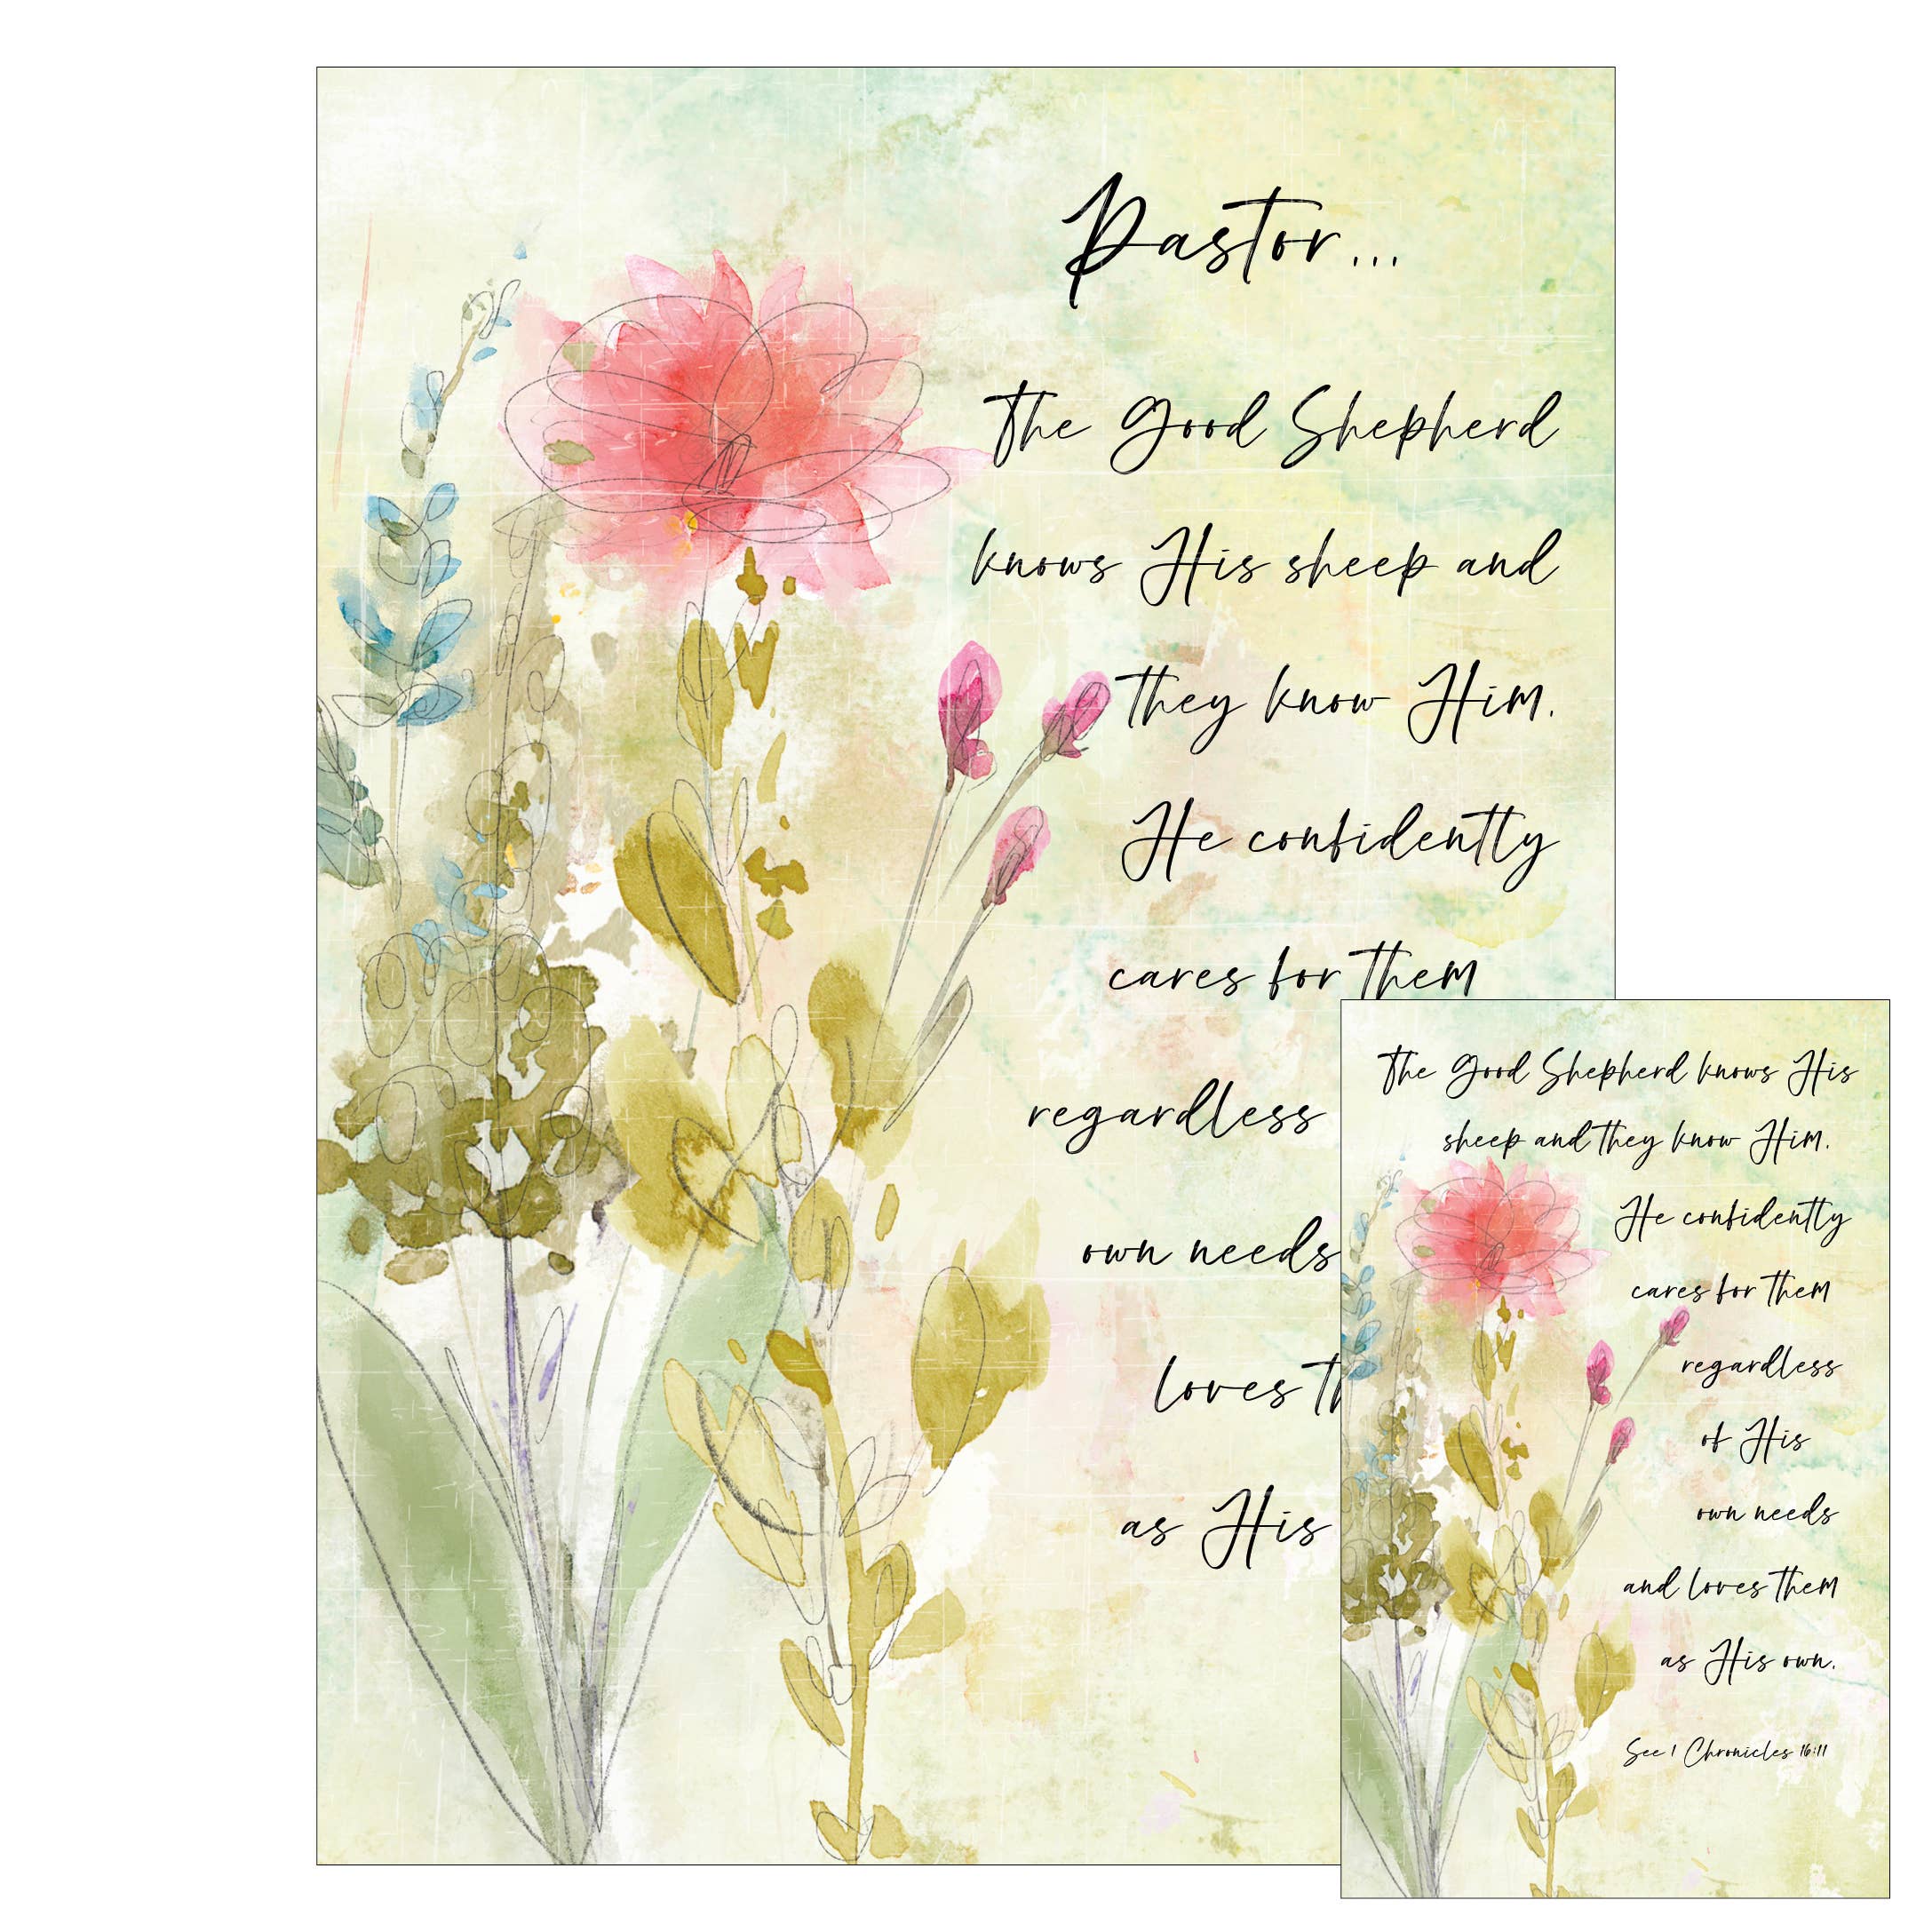 Pastor...
The Good Shepherd
knows His sheep and
they know Him.
He confidently
cares for them
regardless
own needs
loves
as His
The Good Shepherd knows His
sheep and they know Him.
He confidently
cares for them
regardless
of His
own needs
and loves them
as His own.
See 1 Chronicles 16:11